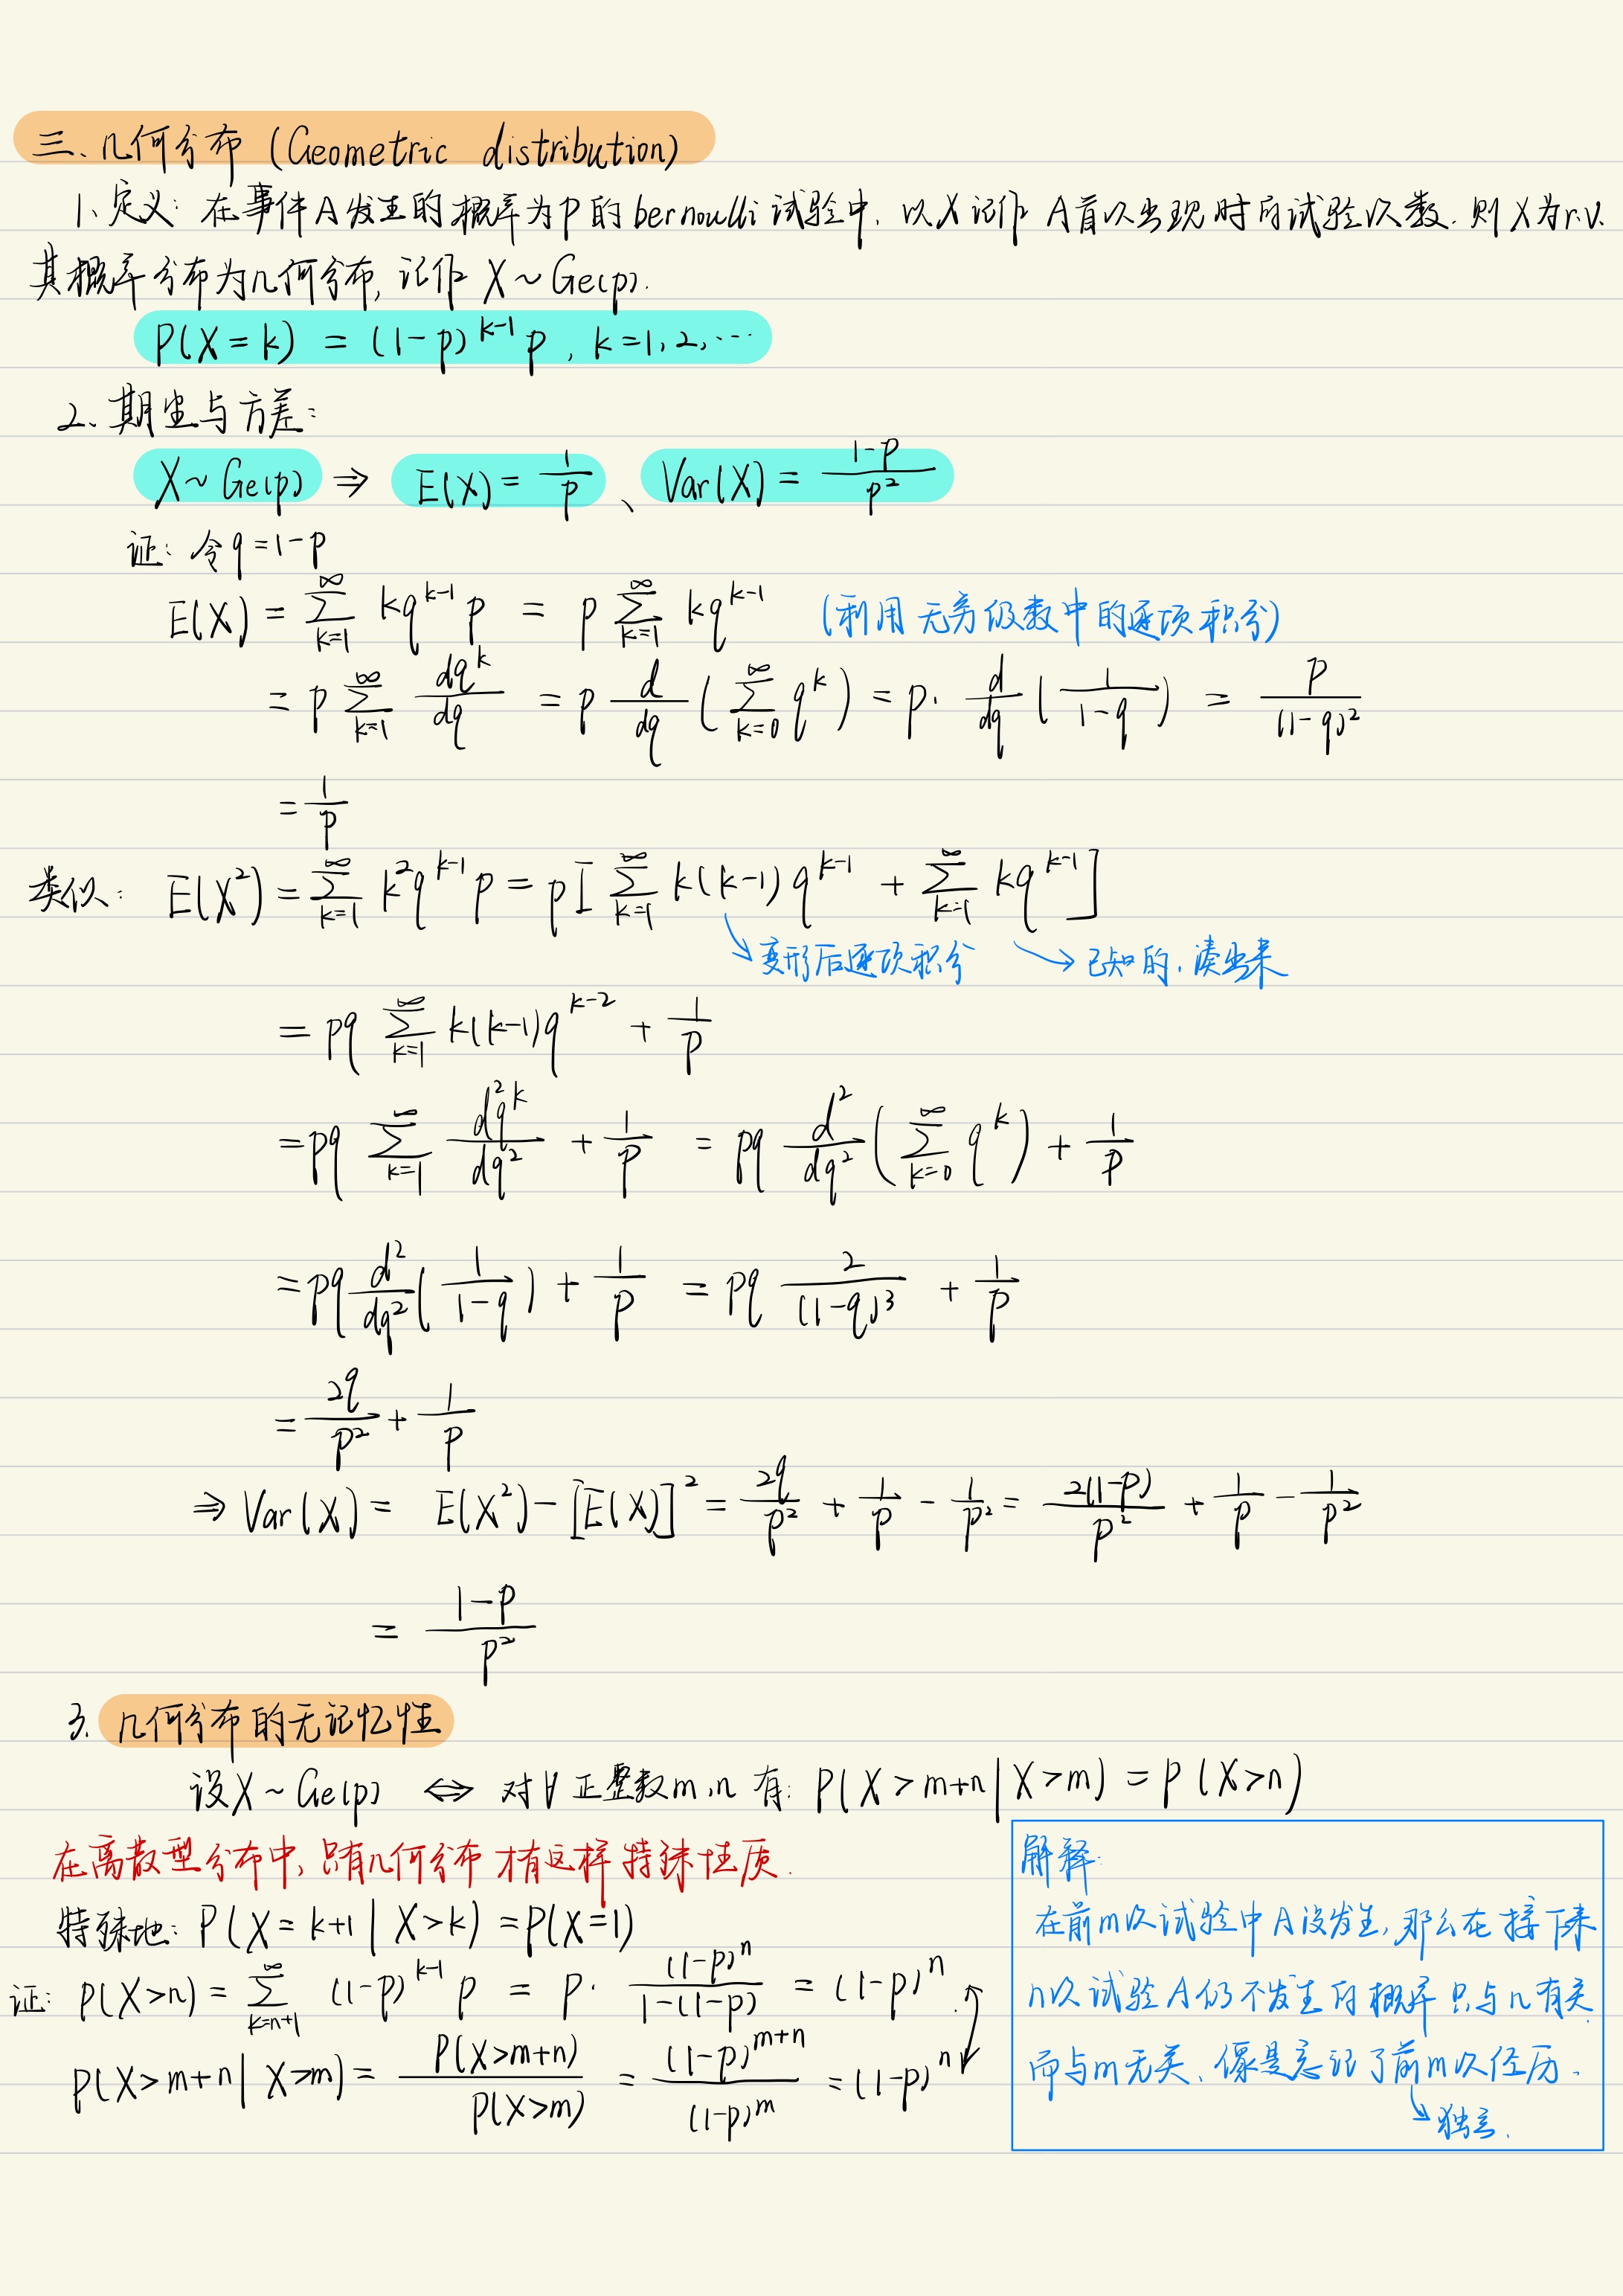 三、几何分布 (Geometric distribution)
1、定义: 在事件A发生的概率为p的bernoulli试验中, 以X记作 A首次出现时的试验次数. 则X为r.v.
其概率分布为几何分布, 记作 X ~ Ge(p).
P(X=k) = (1-p)^{k-1} p , k=1,2,…
2、期望与方差:
X ~ Ge(p) ⇒ E(X) = \frac{1}{p} 、 Var(X) = \frac{1-p}{p^2}
证: 令q=1-p
E(X) = \sum_{k=1}^{∞} kq^{k-1} p = p \sum_{k=1}^{∞} kq^{k-1} (利用无穷级数中的逐项积分)
= p \sum_{k=1}^{∞} \frac{dq^k}{dq} = p \frac{d}{dq} ( \sum_{k=0}^{∞} q^k ) = p· \frac{d}{dq} ( \frac{1}{1-q} ) = \frac{p}{(1-q)^2}
= \frac{1}{p}
类似: E(X^2) = \sum_{k=1}^{∞} k^2 q^{k-1} p = p [ \sum_{k=1}^{∞} k(k-1) q^{k-1} + \sum_{k=1}^{∞} kq^{k-1} ]
↘ 变形后逐项积分 ↘→ 已知的, 凑出来
= pq \sum_{k=1}^{∞} k(k-1)q^{k-2} + \frac{1}{p}
= pq \sum_{k=1}^{∞} \frac{d^2 q^k}{dq^2} + \frac{1}{p} = pq \frac{d^2}{dq^2} ( \sum_{k=0}^{∞} q^k ) + \frac{1}{p}
= pq \frac{d^2}{dq^2} ( \frac{1}{1-q} ) + \frac{1}{p} = pq \frac{2}{(1-q)^3} + \frac{1}{p}
= \frac{2q}{p^2} + \frac{1}{p}
⇒ Var(X) = E(X^2) - [E(X)]^2 = \frac{2q}{p^2} + \frac{1}{p} - \frac{1}{p^2} = \frac{2(1-p)}{p^2} + \frac{1}{p} - \frac{1}{p^2}
= \frac{1-p}{p^2}
3. 几何分布的无记忆性
设X ~ Ge(p) ⇔ 对∀正整数m,n 有: P(X > m+n | X > m) = P(X > n)
在离散型分布中, 只有几何分布才有这样特殊性质.
特殊地: P(X = k+1 | X > k) = P(X=1)
证: P(X>n) = \sum_{k=n+1}^{∞} (1-p)^{k-1} p = p· \frac{(1-p)^n}{1-(1-p)} = (1-p)^n
P(X>m+n | X>m) = \frac{P(X>m+n)}{P(X>m)} = \frac{(1-p)^{m+n}}{(1-p)^m} = (1-p)^n
解释:
在前m次试验中A没发生, 那么在接下来
n次试验A仍不发生的概率只与n有关
而与m无关、像是忘记了前m次经历.
↘ 独立.